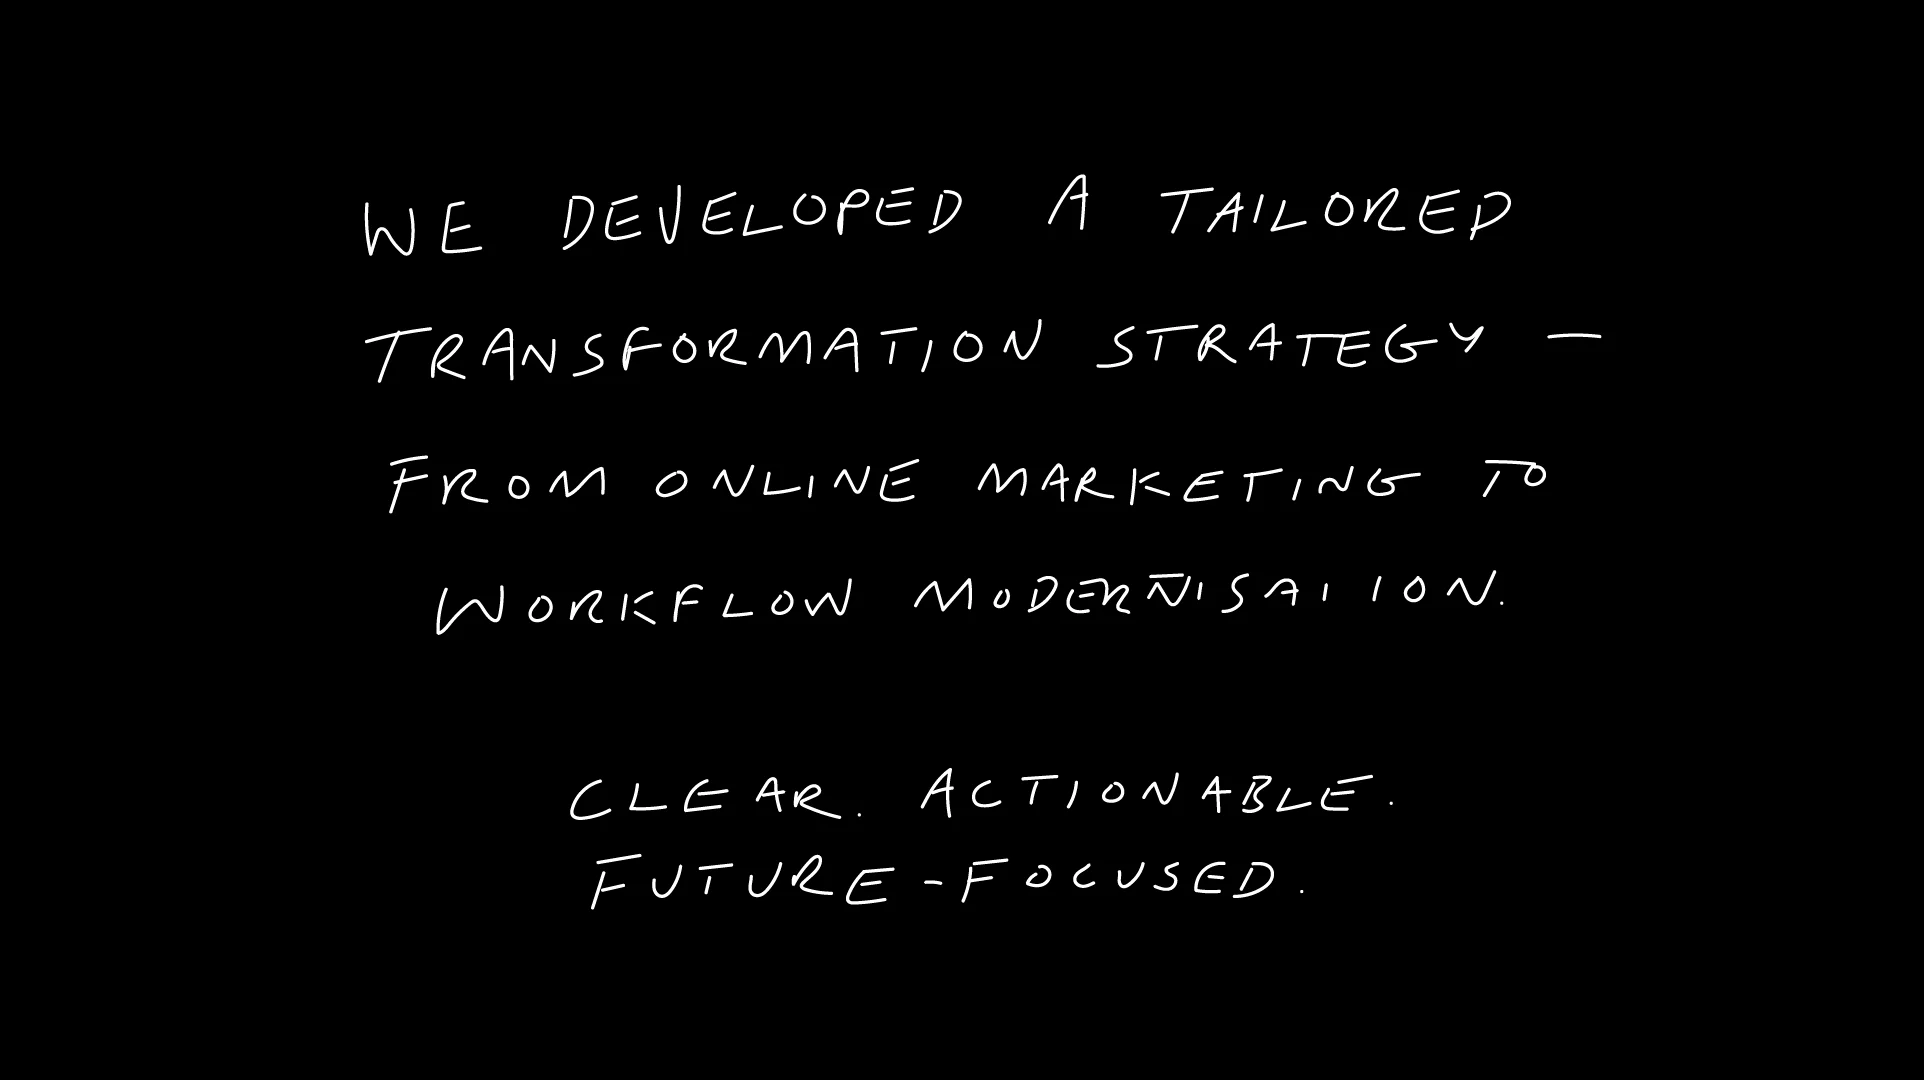 WE DEVELOPED A TAILORED
TRANSFORMATION STRATEGY —
FROM ONLINE MARKETING TO
WORKFLOW MODERNISATION.
CLEAR. ACTIONABLE.
FUTURE-FOCUSED.